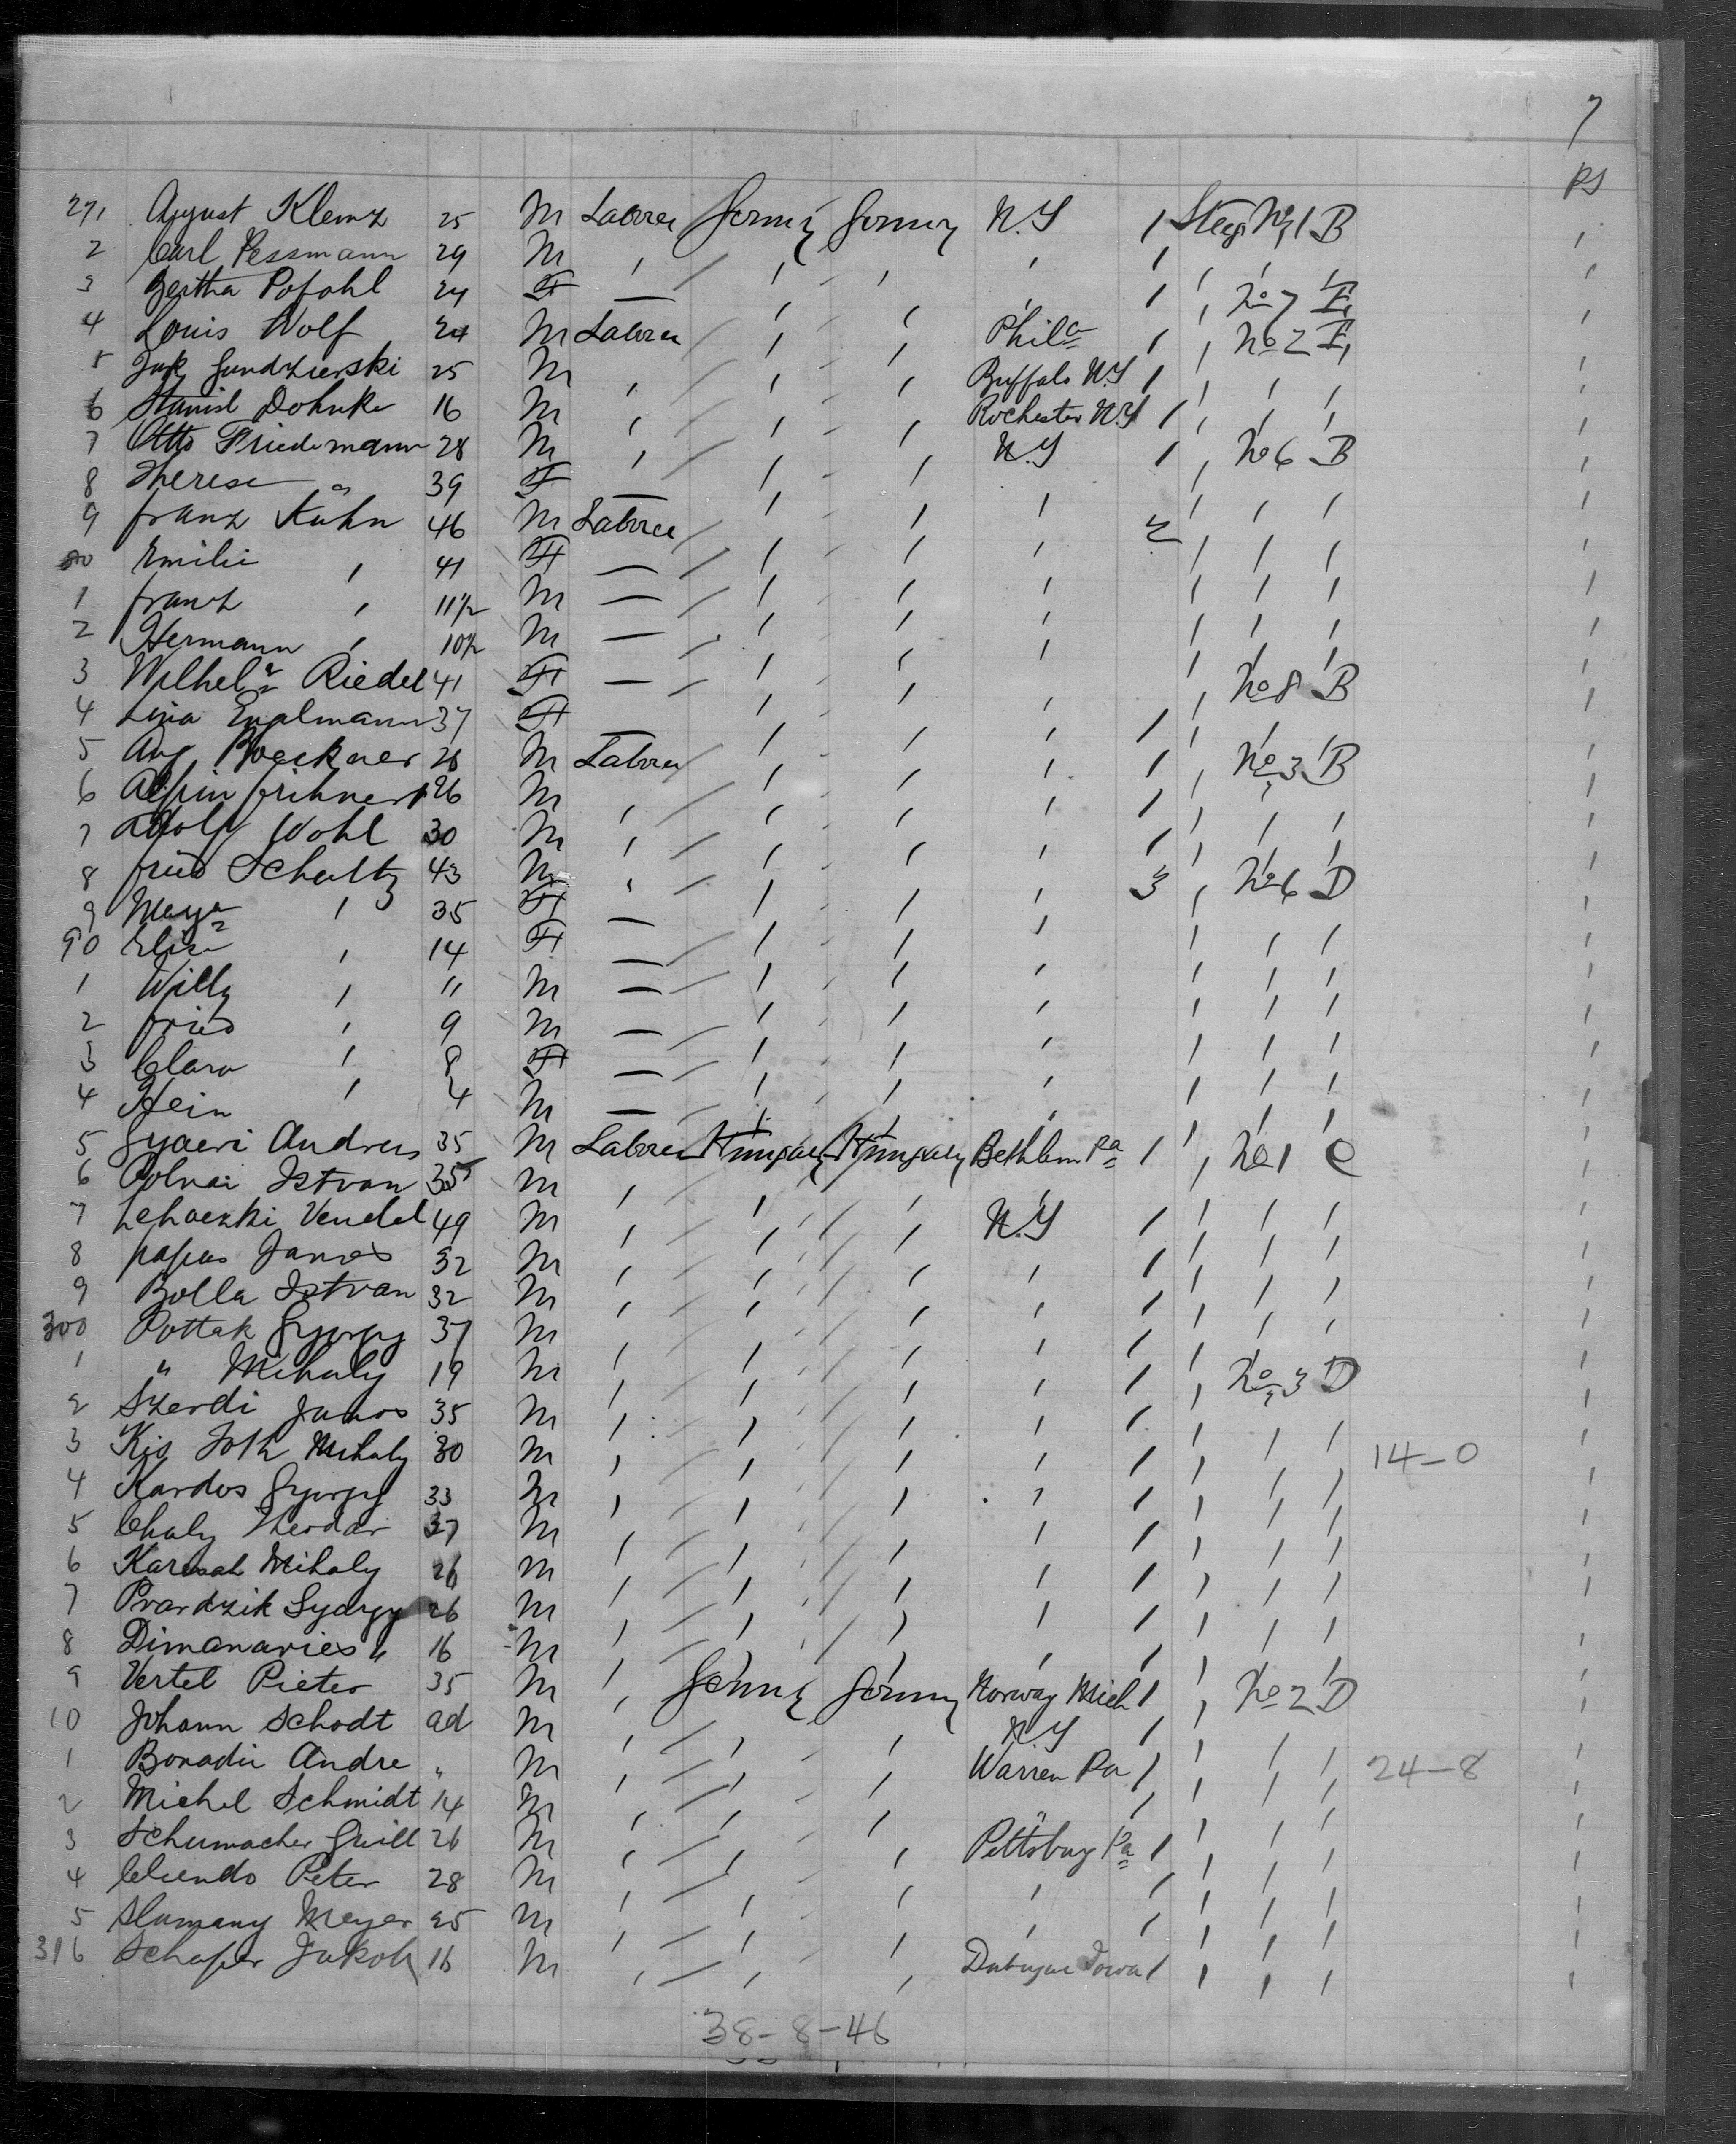 7
PS
271 August Klemz 25 M Laborer Germy Germy N.Y 1 Steeg No 1 B
2 Carl Pessmann 29 M ' / ' ' ' 1 ' ' '
3 Bertha Pofahl 24 F — ' ' ' 1 ' No 7 E
4 Louis Wolf 24 M Laborer ' ' Phila 1 ' No 2 E
5 Jak Gundzierski 25 M ' / ' ' Buffalo N.Y 1 ' ' '
6 Stanisl Dohnke 16 M ' / ' ' Rochester N.Y 1 ' ' '
7 Otto Friedemann 28 M ' / ' ' N.Y 1 ' No 6 B
8 Therese " 39 F — ' ' ' ' ' '
9 Franz Kuhn 46 M Laborer / ' ' ' 2 ' ' '
80 Emilie ' 41 F — / ' ' ' ' ' '
1 Franz ' 11 1/2 M — / ' ' ' ' ' '
2 Hermann ' 10 1/2 M — ' ' ' ' ' '
3 Wilhela Riedel 41 F — / ' ' ' ' No 8 B
4 Lina Englmann 37 F — ' ' ' 1 ' ' '
5 Aug 28 M Laborer / ' ' ' 1 ' No 3 B
6 26 M ' / ' ' ' 1 ' ' '
7 Adolf Wohl 30 M ' / ' ' ' 1 ' ' '
8 Fried Schultz 43 M ' / ' ' ' 3 ' No 6 D
9 ' 35 F — ' ' ' ' ' '
90 Elise ' 14 F — / ' ' ' ' ' '
1 Willy ' 11 M — / ' ' ' ' ' '
2 Fried ' 9 M — / ' ' ' ' ' '
3 Clara ' 8 F — / ' ' ' ' ' '
4 Hein ' 4 M — / ' ' ' ' ' '
5 Andreas 35 M Laborer Hungary Hungary Bethlem Pa 1 ' No 1 C
6 Istvan 35 M ' / ' / ' ' ' ' '
7 Vendel 49 M ' / ' / ' N.Y 1 ' ' '
8 papas Janos 32 M ' / ' / ' ' 1 ' ' '
9 Bolla Istvan 32 M ' / ' / ' ' 1 ' ' '
300 Pottak Gyorgy 37 M ' / ' / ' ' 1 ' ' '
1 " Mihaly 19 M ' / ' / ' ' 1 ' No 3 D
2 Szerdi Janos 35 M ' / ' / ' ' 1 ' ' '
3 Kis Toth Mihaly 30 M ' / ' / ' ' 1 ' ' ' 14-0
4 Kardos Gyorgy 33 M ' / ' / ' ' 1 ' ' '
5 Chaly Theodor 37 M ' / ' / ' ' 1 ' ' '
6 Mihaly 26 M ' / ' / ' ' 1 ' ' '
7 Prardzik Gyorgy 26 M ' / ' / ' ' 1 ' ' '
8 Dimanaries " 16 M ' / ' / ' ' 1 ' ' '
9 Vertel Pieter 35 M ' Germy Germy Norway Mich 1 ' No 2 D
10 Johann Schodt ad M ' / ' ' N.Y 1 ' ' '
1 Bonadir Andre " M ' / ' ' Warren Pa 1 ' ' ' 24-8
2 Michel Schmidt 14 M ' / ' ' " 1 ' ' '
3 Schumacher Guill 26 M ' / ' ' Pittsburg Pa 1 ' ' '
4 Peter 28 M ' / ' ' ' 1 ' ' '
5 Meyer 25 M ' / ' ' ' 1 ' ' '
316 Schafer Jakob 16 M ' / ' ' Dubuque Iowa 1 ' ' '
38-8-46